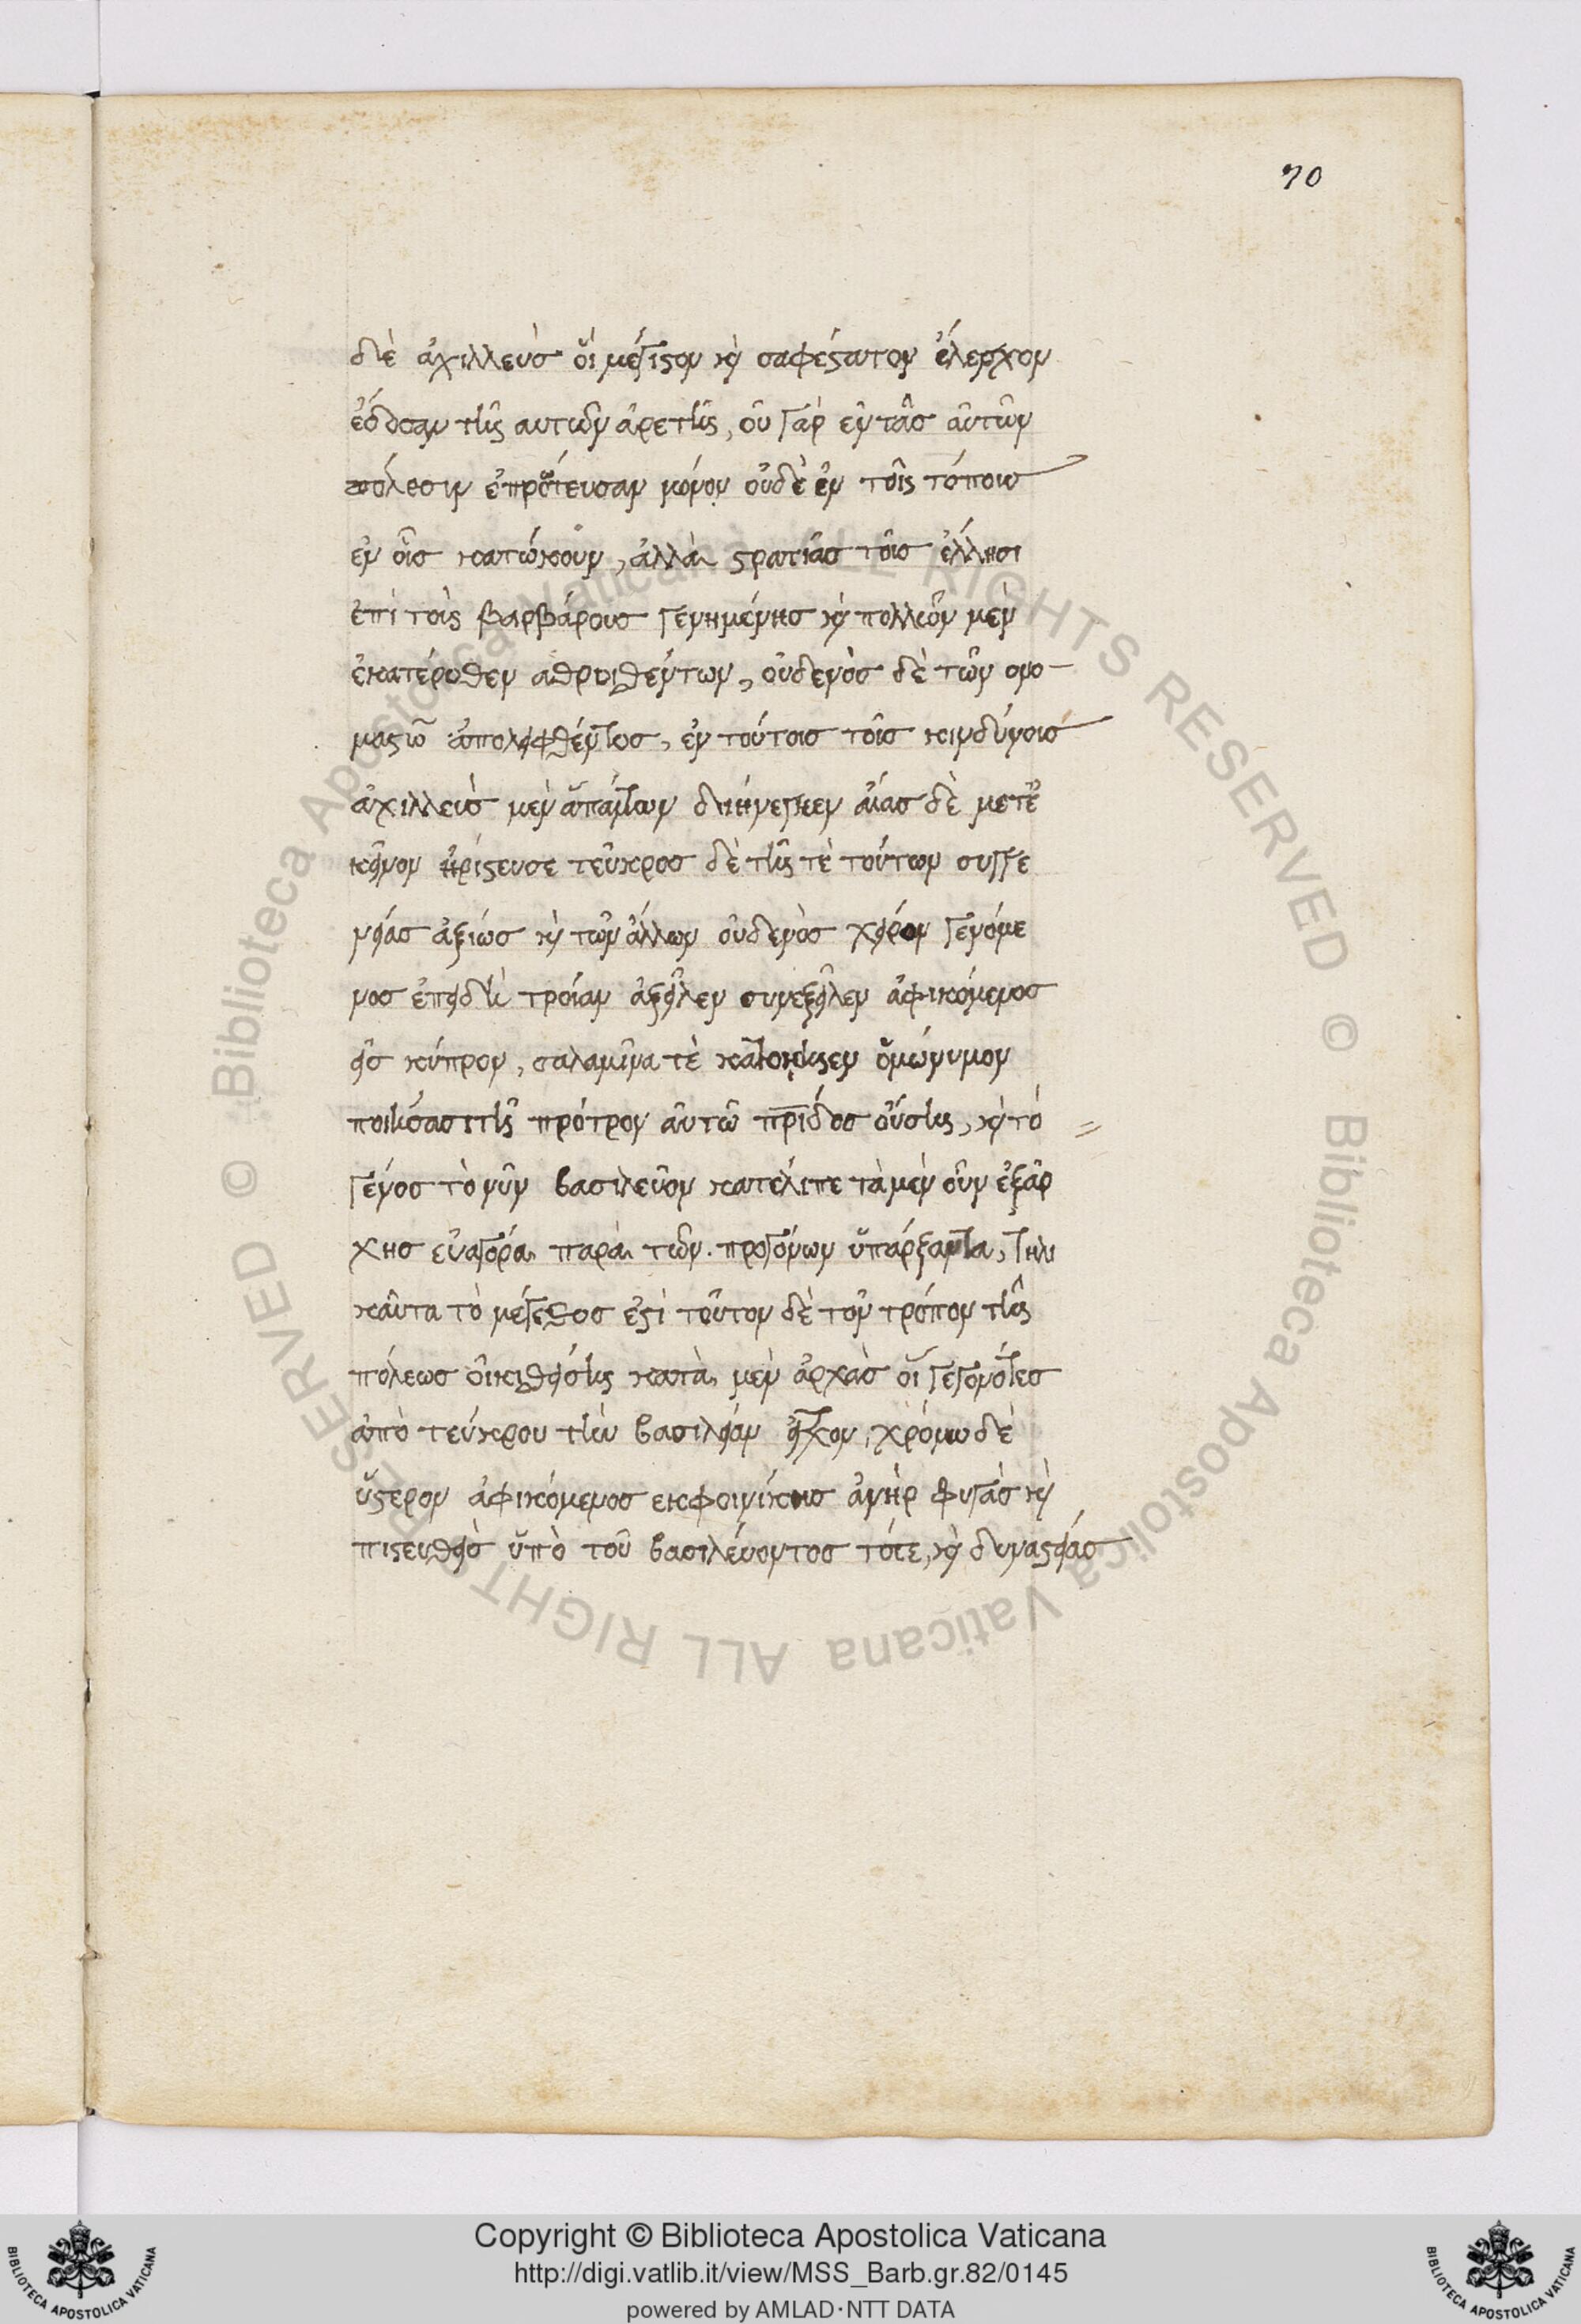 70
δὲ ἀχιλλεὺσ οἵ μέγιστον καὶ σαφέστατον ἔλεγχον
ἔδοσαν τῆς αυτῶν ἀρετῆς, οὐ γὰρ ἐν ταῖσ αὐτῶν
πόλεσιν ἐπρώτευσαν μόνον οὐδὲ ἐν τοῖς τόποισ
ἐν οἷσ κατώκουν, ἀλλὰ στρατιᾶσ τοῖσ ἕλλησι
ἐπὶ τοὶς βαρβάρουσ γενημένησ καὶ πολλῶν μὲν
ἑκατέρωθεν αθροισθέντων, οὐδενὸσ δὲ τῶν ονο-
μαστῶν ἀπολειφθέντοσ, ἐν τούτοισ τοῖσ κινδύνοισ
ἀχιλλεὺσ μὲν ἁπάντων διήνεγκεν αἴασ δὲ μετ᾽ ἐ
κεῖνον ἠρίστευσε τεῦκροσ δὲ τῆς τὲ τούτων συγγε
νείασ ἀξίωσ καὶ τῶν ἄλλων οὐδενὸσ χείρον γενόμε
νοσ ἐπειδὴ τροίαν ἀξεῖλεν συνεξεῖλεν ἀφικόμενοσ
εἰσ κύπρον, σαλαμῖνα τὲ κατοίκισεν ὁμώνυμον
ποιήσασ τῆς πρότρον αὐτῶ πρίδοσ οὔσης, καὶ τὸ
γένοσ τὸ νῦν βασιλεῦον κατέλιπε τὰ μὲν οὖν ἐξ αρ
χῆσ εὐαγόρα παρὰ τῶν προγόνων ὑπάρξαντα, τηλι
καῦτα τὸ μέγεθοσ ἐστὶ τοῦτον δὲ τὸν τρόπον τῆς
πόλεωσ οἰκισθείσης κατὰ μὲν ἀρχὰσ οἵ γεγονότεσ
ἀπὸ τεύκρου τὴν βασιλείαν εἶχον, χρόνω δὲ
ὕστερον ἀφικόμενοσ εκ φοινίκησ ἀνὴρ φυγὰσ καὶ
πιστευθεὶσ ὑπὸ τοῦ βασιλέυοντοσ τότε, καὶ δυναστείασ
Copyright © Biblioteca Apostolica Vaticana
http://digi.vatlib.it/view/MSS_Barb.gr.82/0145
powered by AMLAD·NTT DATA
BIBLIOTECA APOSTOLICA VATICANA
BIBLIOTECA APOSTOLICA VATICANA
© Biblioteca Apostolica Vaticana ALL RIGHTS RESERVED © Biblioteca Apostolica Vaticana ALL RIGHTS RESERVED